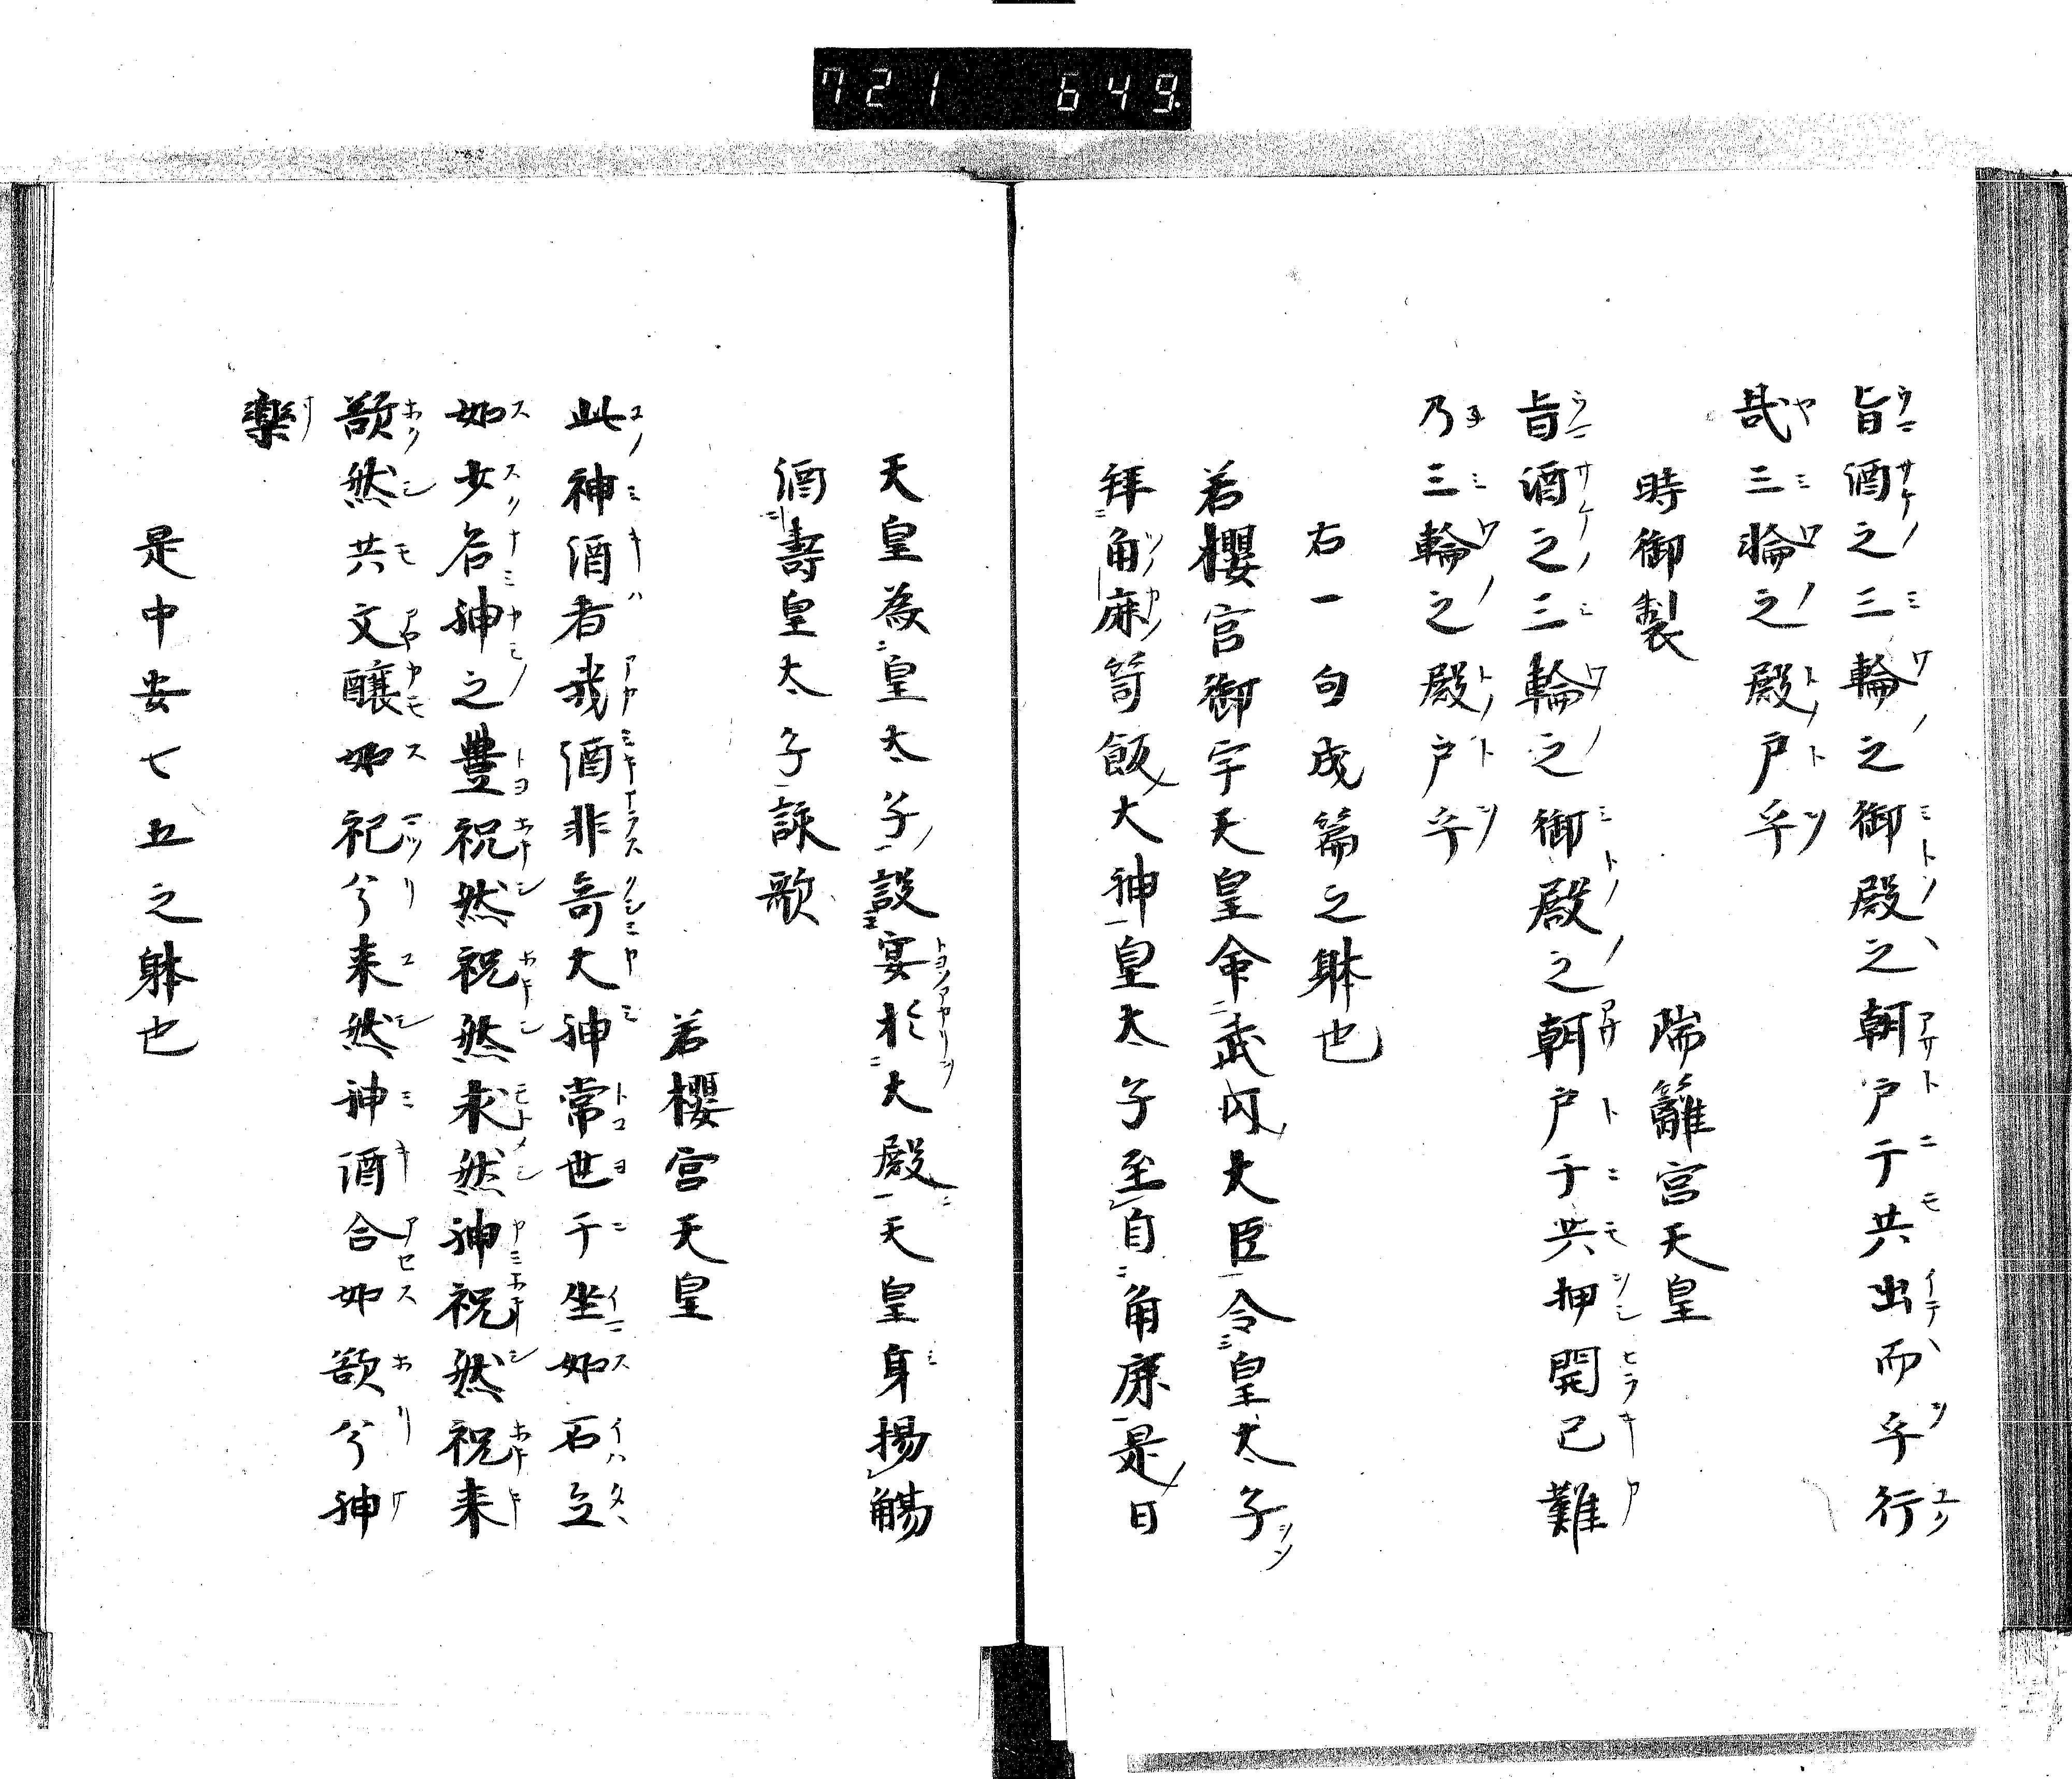 721 649.
旨酒之三輪之御殿之朝戸于共出而乎行
哉三輪之殿戸乎
時御製
瑞籬宮天皇
旨酒之三輪之御殿之朝戸于共押開已難
乃三輪之殿戸乎
右一句成篇之躰也
若櫻宮御宇天皇命武内大臣令皇太子
拜角鹿笥飯大神皇太子至自角鹿是日
天皇為皇太子設宴於大殿天皇身揚觴
酒壽皇太子詠歌
若櫻宮天皇
此神酒者我酒非奇大神常世于坐如石立
如少名神之豐祝然祝然求然神祝然祝来
欲然共文釀如祀兮来然神酒合如欲兮神
樂
是中安七五之躰也